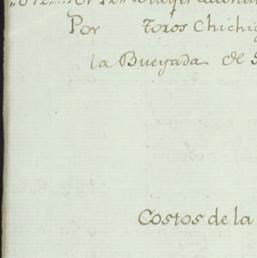 Por Toros Chichig
la Bueyada de S
Costos de la